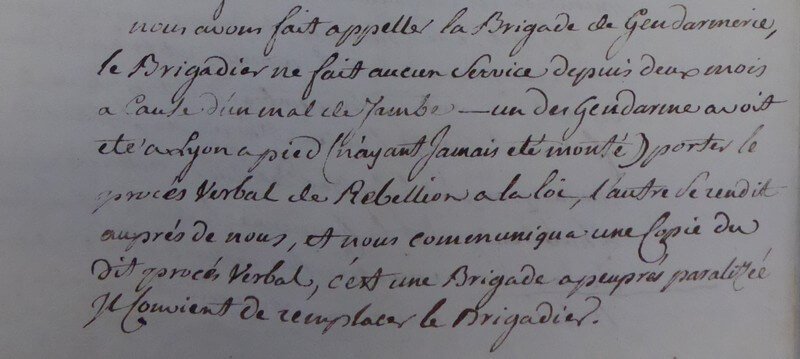 nous avons fait appeller la Brigade de Gendarmerie,
le Brigadier ne fait aucun Service depuis deux mois
a Cause d'un mal de Jambe — un des Gendarme avoit
eté a Lyon a pied (n'ayant Jamais eté monté) porter le
procés Verbal de Rebellion a la loi, l'autre Se rendit
auprés de nous, et nous communiqua une Copie du
dit procés Verbal, c'est une Brigade apeuprés paralizéé
Il Convient de remplacer le Brigadier.